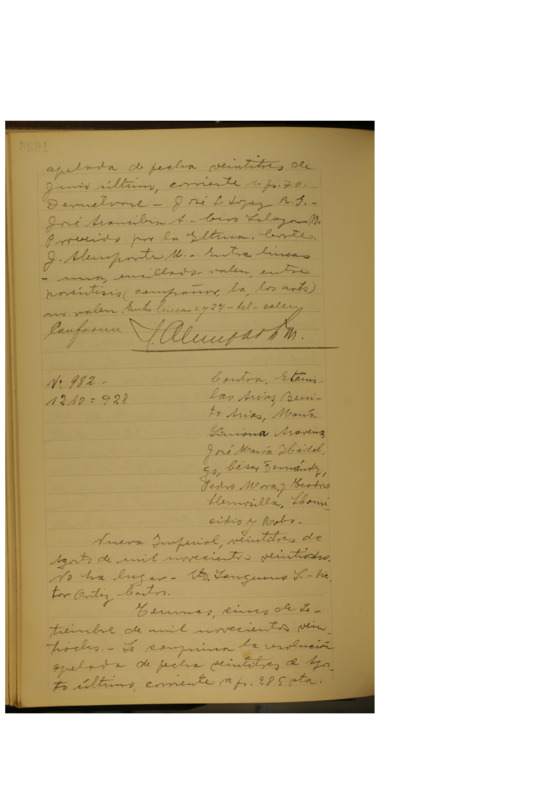 apelada de fecha veintitres de
Junio último, corriente a fs. 70.
Devuélvase - José L López R G. -
José Arancibia A. - Ciro Salazar M.
Proveido por la Iltma. Corte.
J. Alemparte M. - Entre lineas
valen, entre
paréntisis (la, los autos)
no valen. Entre lineas y 27 - del - valen
Conforme J. Alemparte M.
Nº 982 -
12 10 = 928
Contra, Etanis-
lao Arias, Beni-
to Arias, María
Aravena,
José María Hidal-
go, César Fernández,
Pedro Mora, y
Hermosilla, Homi-
cidio y Robo. -
Nueva Imperial, veintitres de
Agosto de mil novecientos
No ha lugar - S. - Vic-
tor Ortiz Castro.
Temuco, cinco de Se-
tiembre de mil novecientos vein-
tiocho. - Se la resolución
apelada de fecha veintitres de Agos-
to último, corriente a fs. 285 vta.